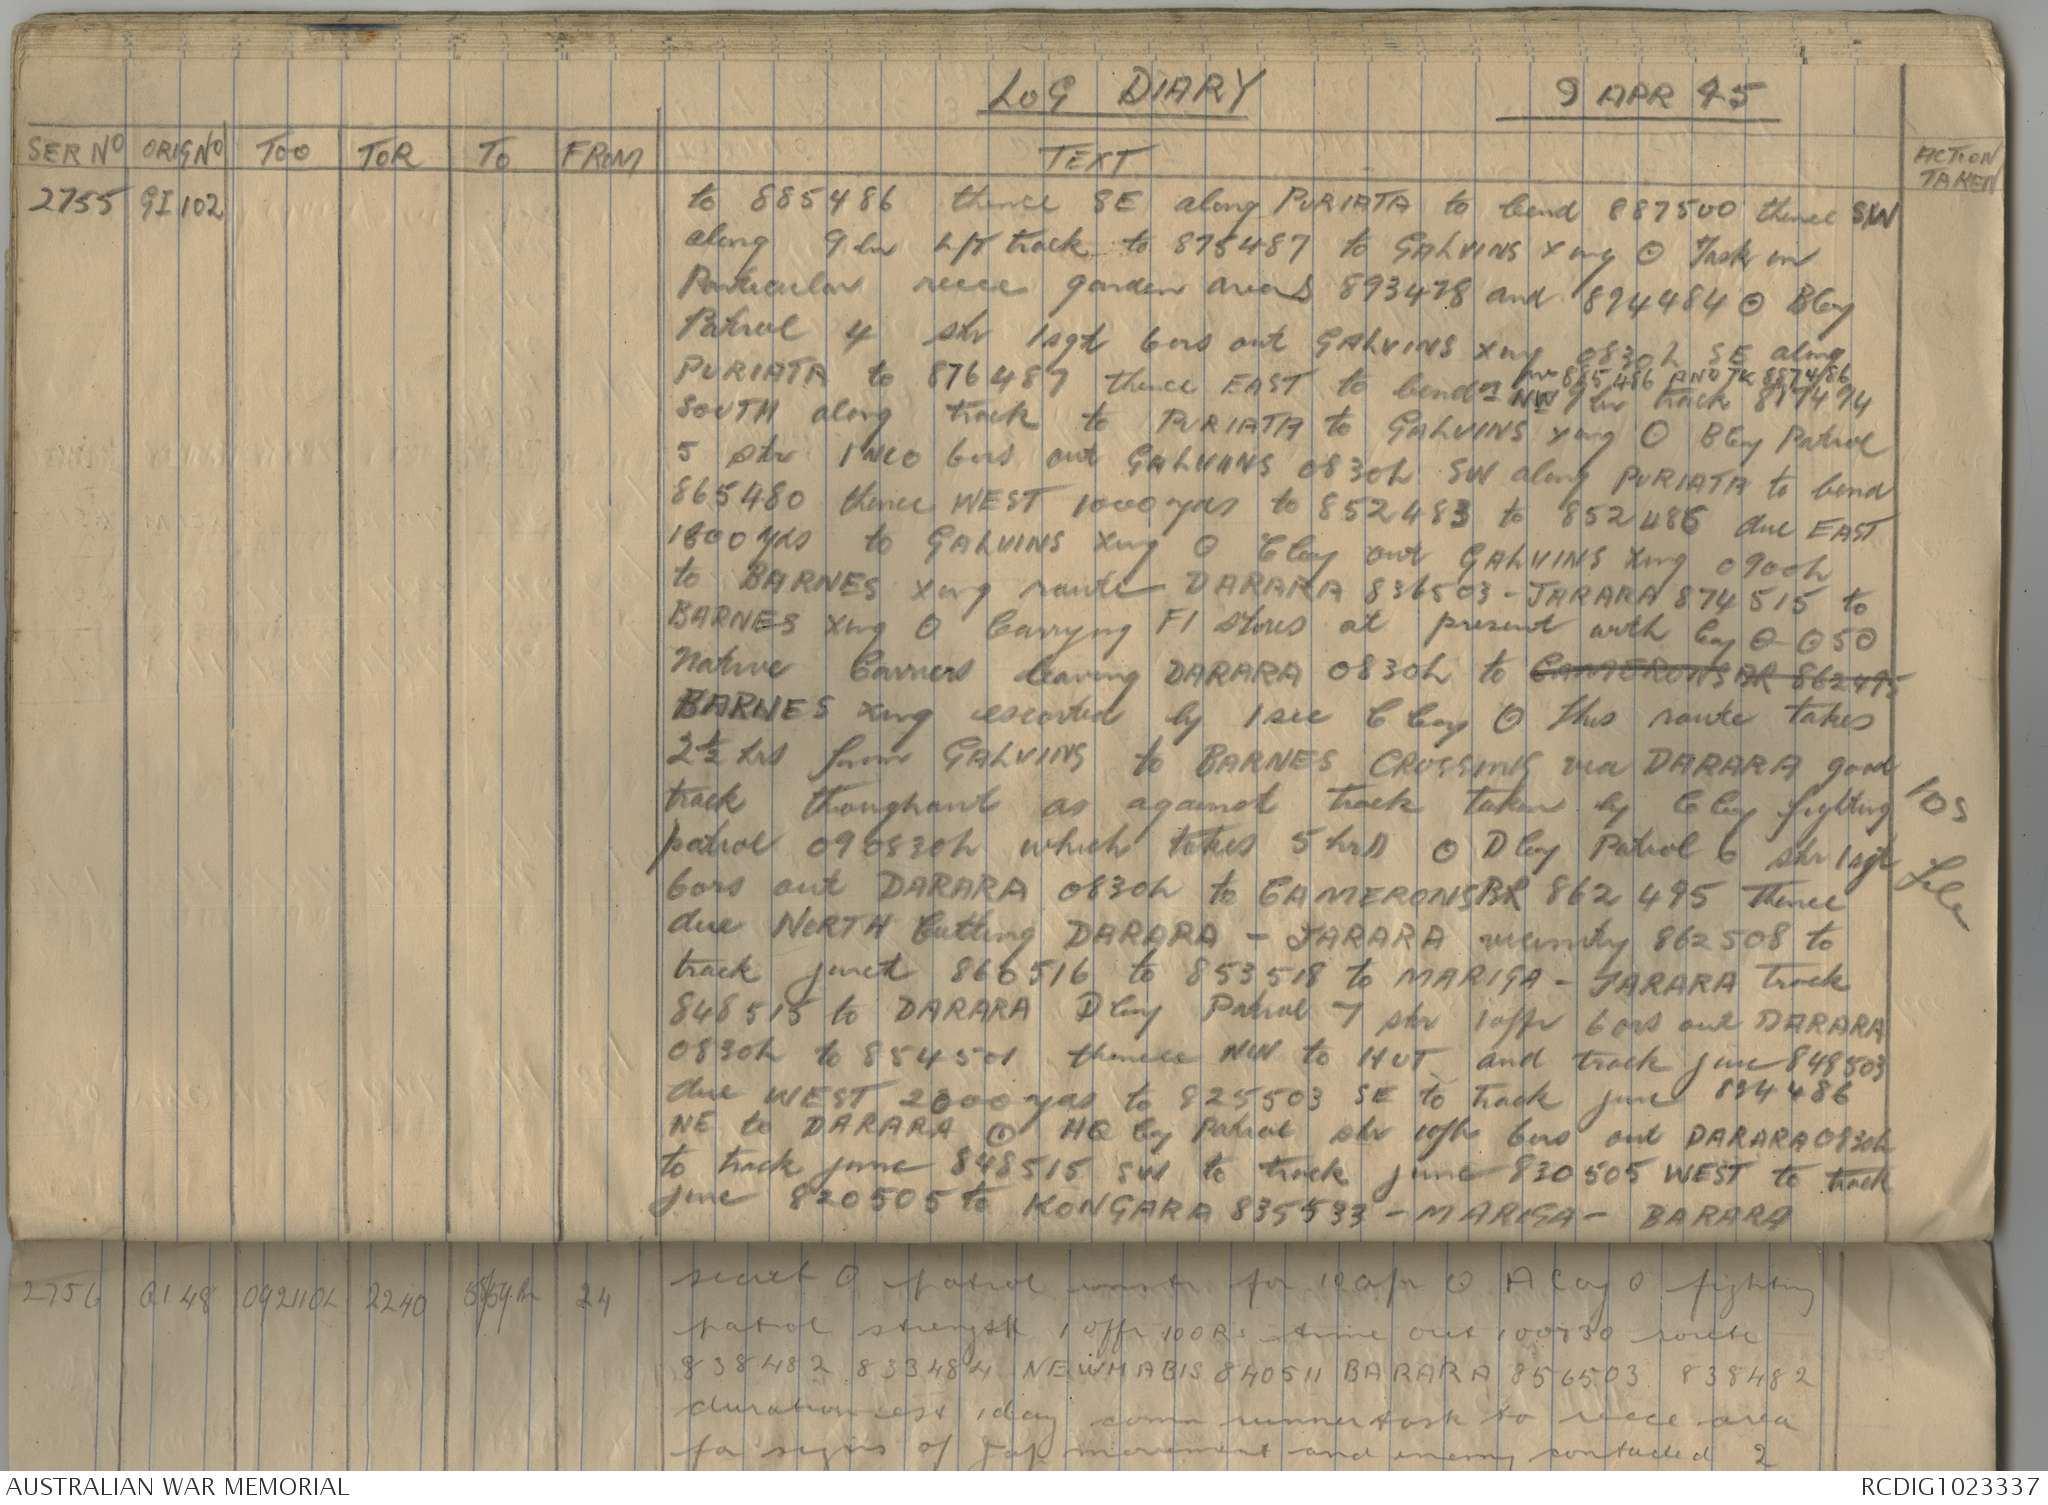 LOG DIARY 9 APR 45
SER NO ORIG NO TOO TOR TO FROM TEXT ACTION TAKEN
2755 GI 102 to 885486 thence SE along PURIATA to bend 887500 thence SW
along 9 hr L/T track to 875487 to GALVINS Xing ⊙ Task in
Particular recce garden areas 893478 and 894484 ⊙ B Coy
Patrol 4 str 1 sgt 6 ors out GALVINS Xing 0830h SE along
PURIATA to 876487 thence EAST to bend
885486 AND TK 887486
NW track 817494
SOUTH along track to PURIATA to GALVINS Xing ⊙ B Coy Patrol
5 str 1 NCO 6 ors out GALVINS 0830h SW along PURIATA to bend
865480 thence WEST 1000 yds to 852483 to 852486 due EAST
1800 yds to GALVINS Xing ⊙ C Coy out GALVINS Xing 0900h
to BARNES Xing route DARARA 836503 - JARARA 874515 to
BARNES Xing ⊙ Carrying F1 stores at present with Coy ⊙ ⊙ 50
Native Carriers leaving DARARA 0830h to CAMERONS BR 862495
BARNES Xing escorted by 1 sec C Coy ⊙ this route takes
2½ hrs from GALVINS to BARNES CROSSING via DARARA good
track thoughout as against track taken by C Coy fighting
patrol 090830h which takes 5 hrs ⊙ D Coy Patrol 6 str 1 sgt
6 ors out DARARA 0830h to CAMERONS BR 862495 thence
due NORTH Cutting DARARA - JARARA vicinity 862508 to
track junct 860516 to 853518 to MARIGA - JARARA Track
848515 to DARARA D Coy Patrol 7 str 1 offr 6 ors out DARARA
0830h to 854501 thence NW to HUT and track junc 848503
due WEST 2000 yds to 825503 SE to track junc 834486
NE to DARARA ⊙ HQ Coy Patrol str 1 offr 6 ors out DARARA 0830h
to track junc 848515 SW to track junc 830505 WEST to track
junc 820505 to KONGARA 835533 - MARIGA - BARARA
IOs
File
2756 O1 48 092110L 2240 24 secret O patrol for 10 Apr ⊙ A Coy O fighting
patrol strength 1 offr 10 ORs time out 100730 route
838482 833484 NEWMABIS 840511 BARARA 856503 838482
duration est 1 day comn runner task to recce area
for signs of Jap movement and enemy contacted 2
AUSTRALIAN WAR MEMORIAL RCDIG1023337